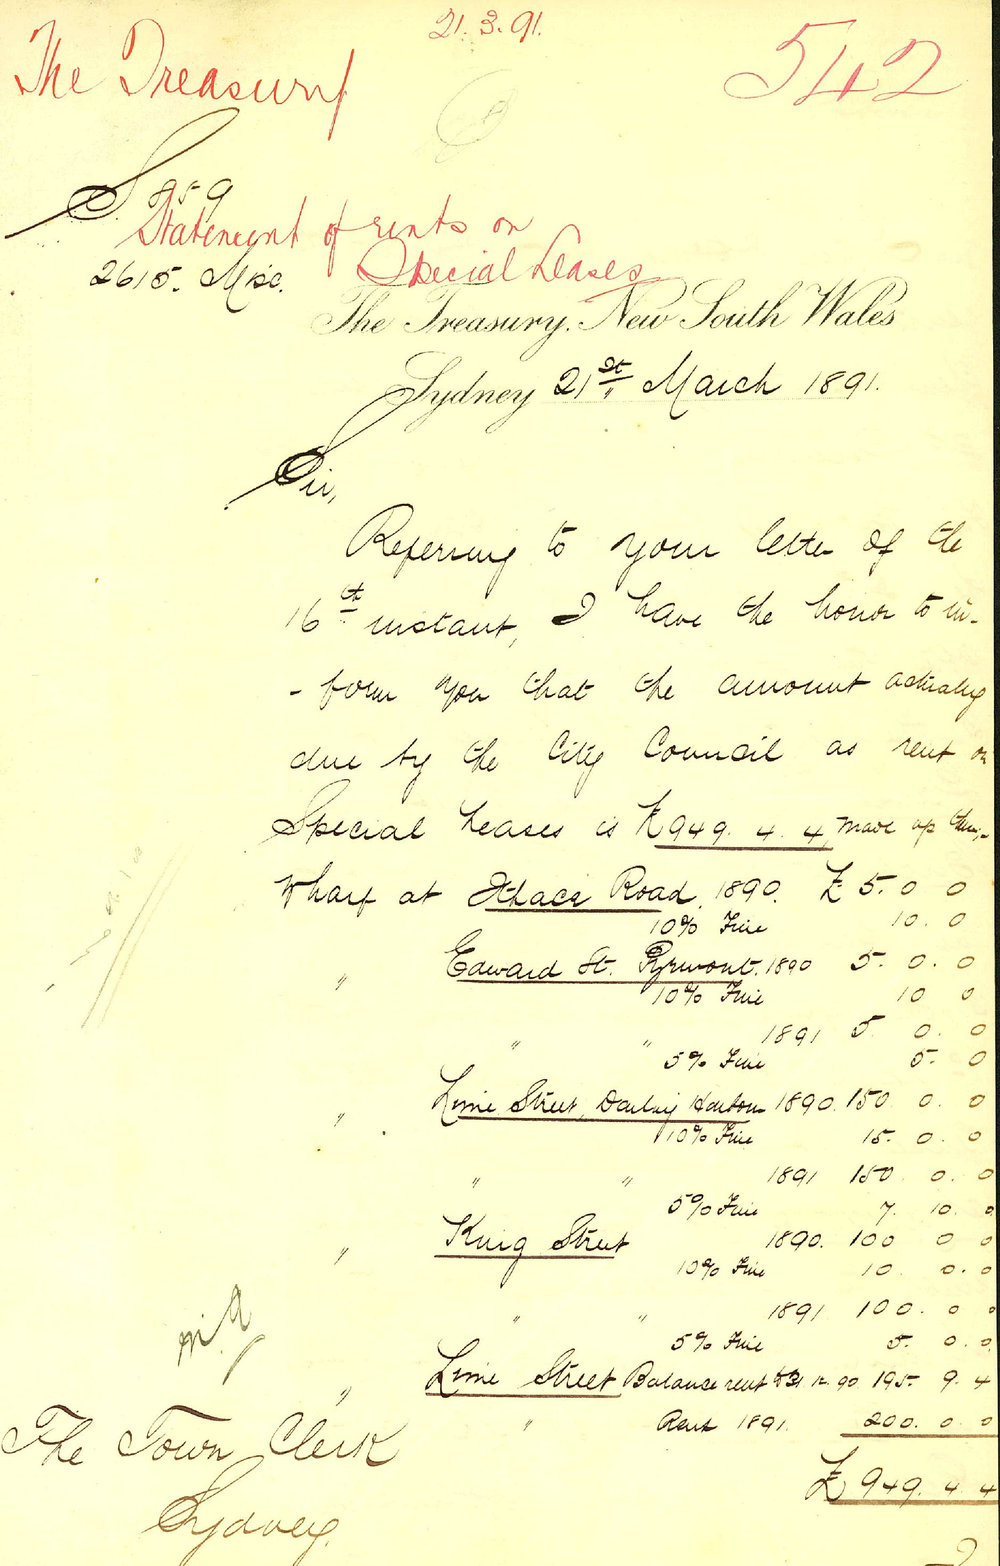 21.3.91.
The Treasury
542
S. 959
Statement of rents on
Special Leases
2615. Misc.
The Treasury, New South Wales
Sydney 21st March 1891.
Sir,
Referring to your letter of the
16th instant, I have the honor to in-
- form you that the amount actually
due by the City Council as rent on
Special Leases is £949. 4. 4, made up thus,-
Wharf at Ithaca Road, 1890. £5. 0 0
10% Fine 10. 0
" Edward St. Pyrmont. 1890 5. 0. 0
10% Fine 10 0
" " 1891 5. 0. 0
5% Fine 5. 0
" Lime Street, Darling Harbour 1890. 150. 0. 0
10% Fine 15. 0. 0
" " 1891 150. 0. 0
5% Fine 7. 10. 0
" King Street 1890. 100 0 0
10% Fine 10. 0. 0
" " 1891 100. 0 0
5% Fine 5. 0. 0
" Lime Street Balance rent to 31.12.90 195. 9. 4
" Rent 1891. 200. 0. 0
£949. 4. 4
The Town Clerk
Sydney.